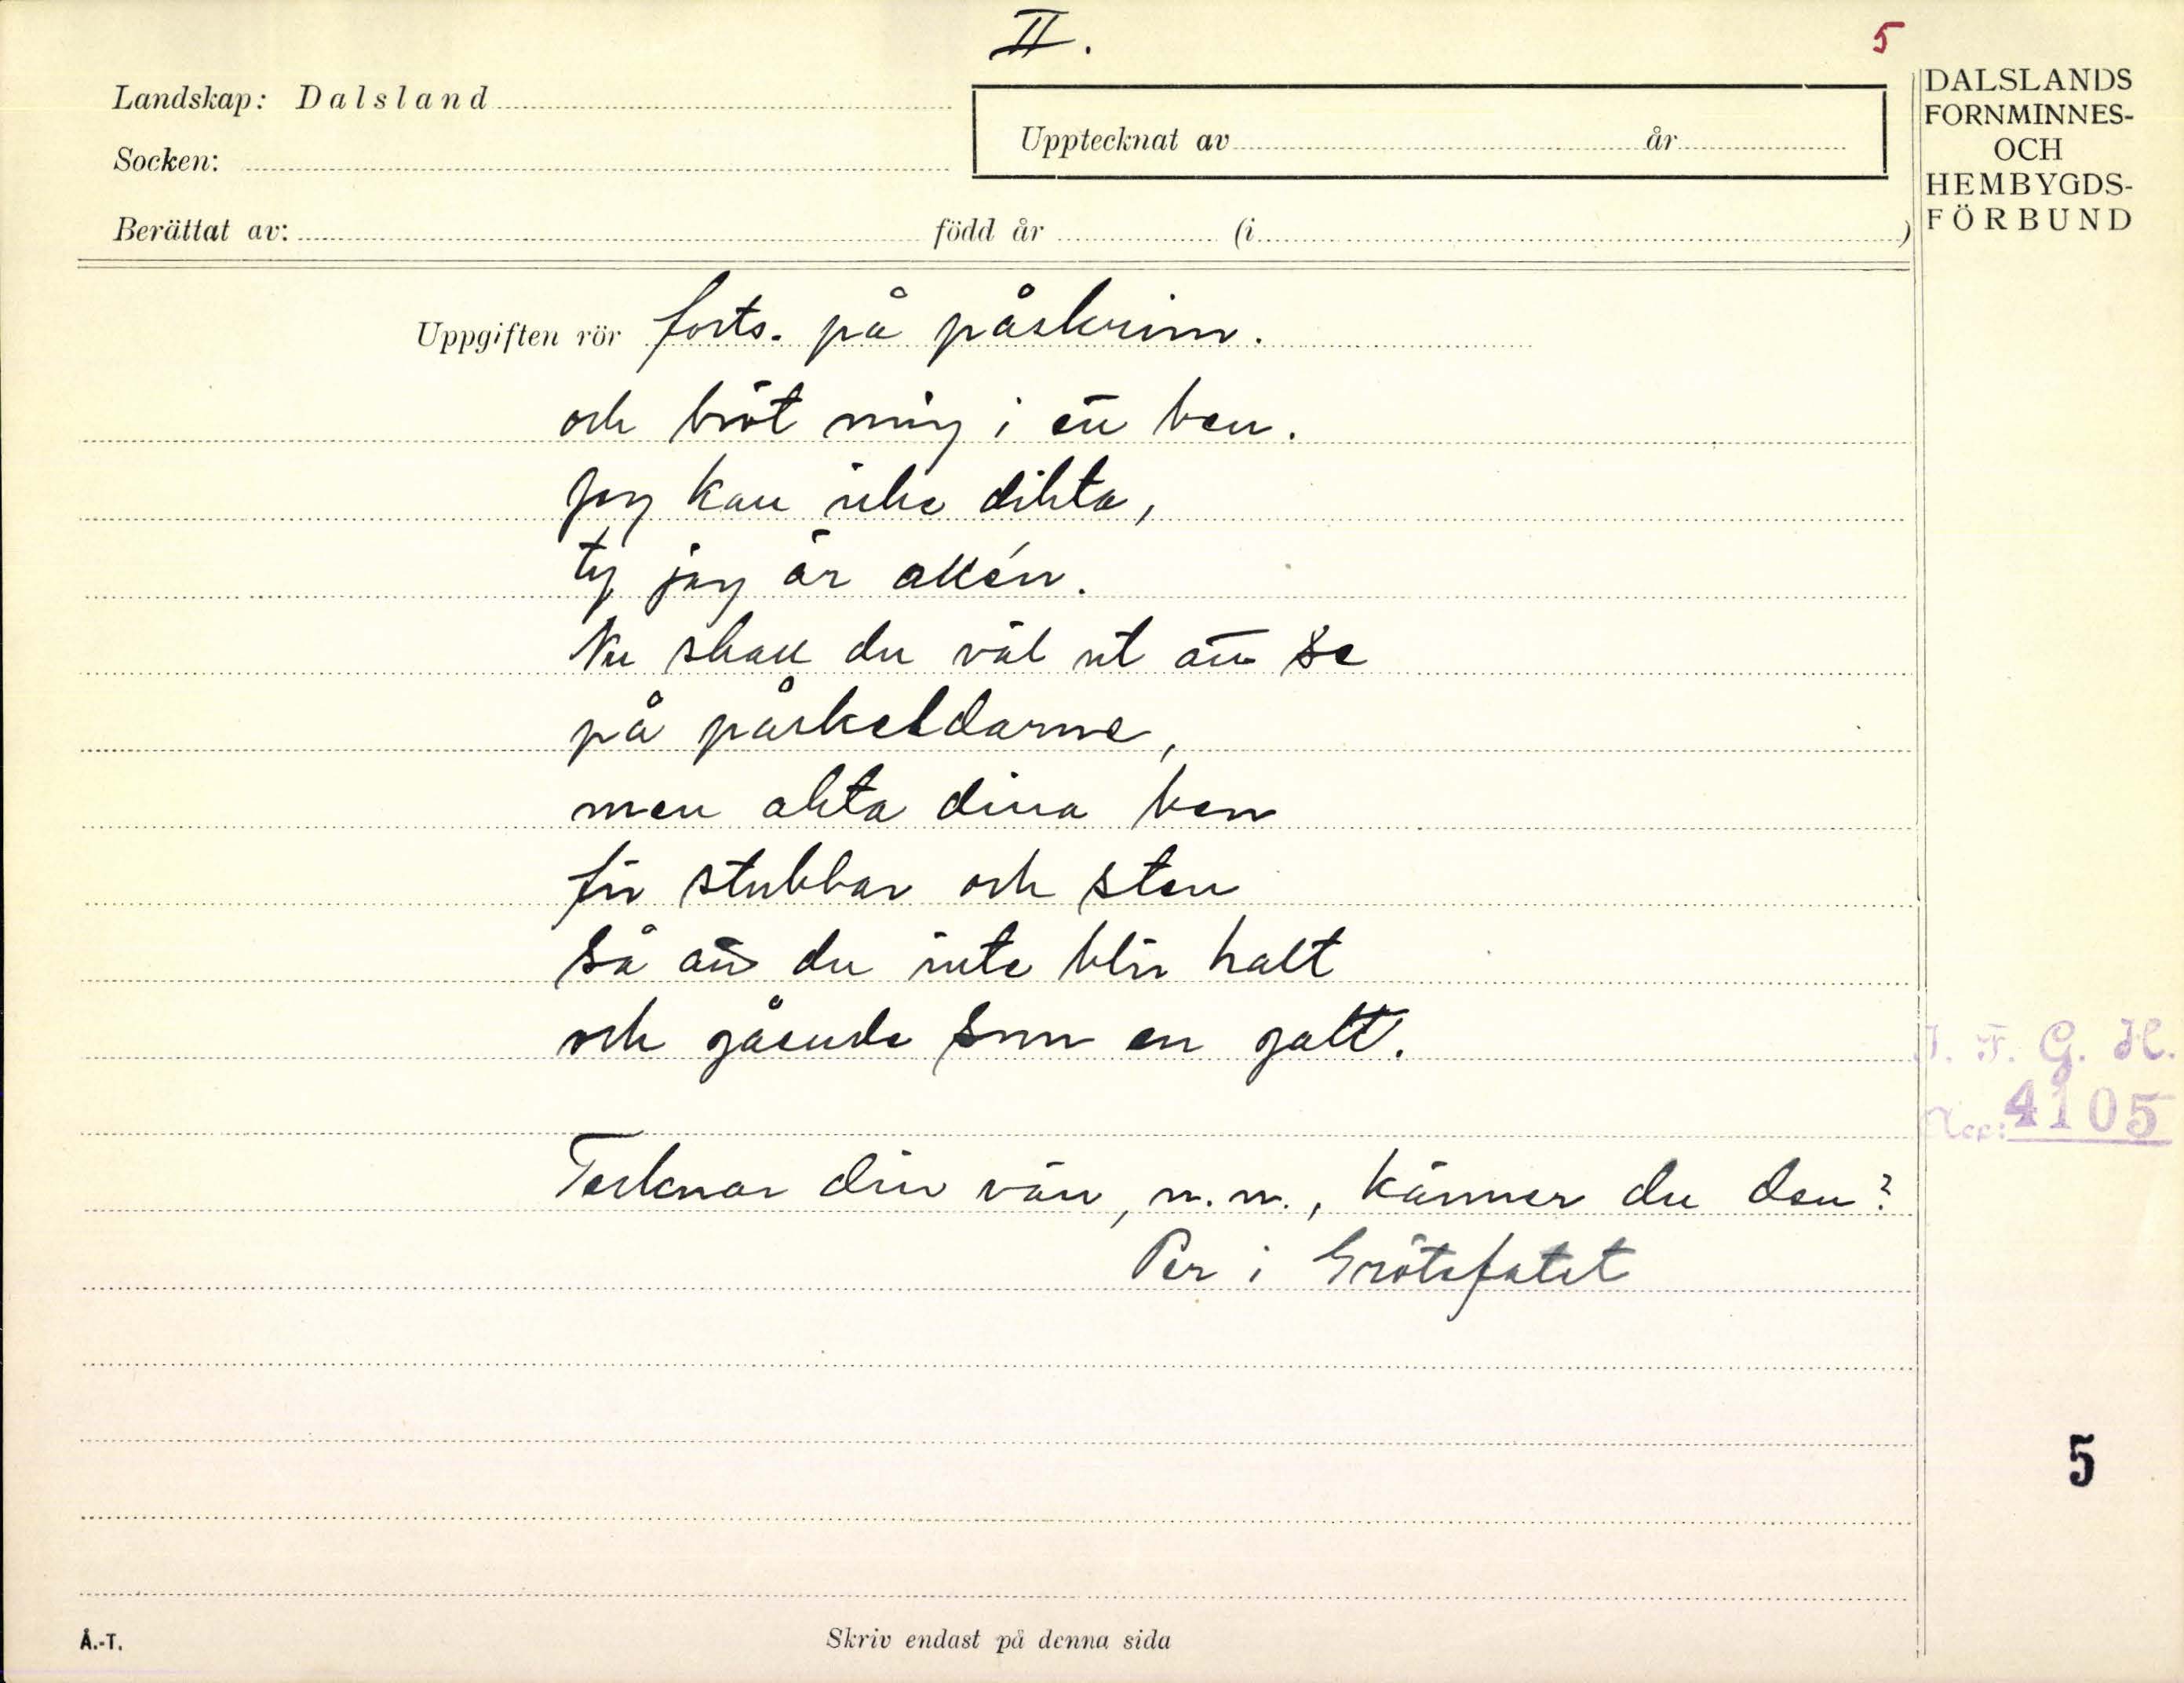 II.
5
Landskap: Dalsland
Socken:
Upptecknat av år
Berättat av: född år (i )
DALSLANDS
FORNMINNES-
OCH
HEMBYGDS-
FÖRBUND
Uppgiften rör forts. på påskrim.
och bröt mig i ett ben.
Jag kan icke dikta,
ty jag är allén.
Nu skall du väl ut att se
på påskeldarne,
men akta dina ben
för stubbar och sten
så att du inte blir halt
och gående som en galt.
Tecknar din vän, n.n., känner du den?
Per i Grötefatet
I. F. G. H.
Acc: 4105
5
Å.-T.
Skriv endast på denna sida